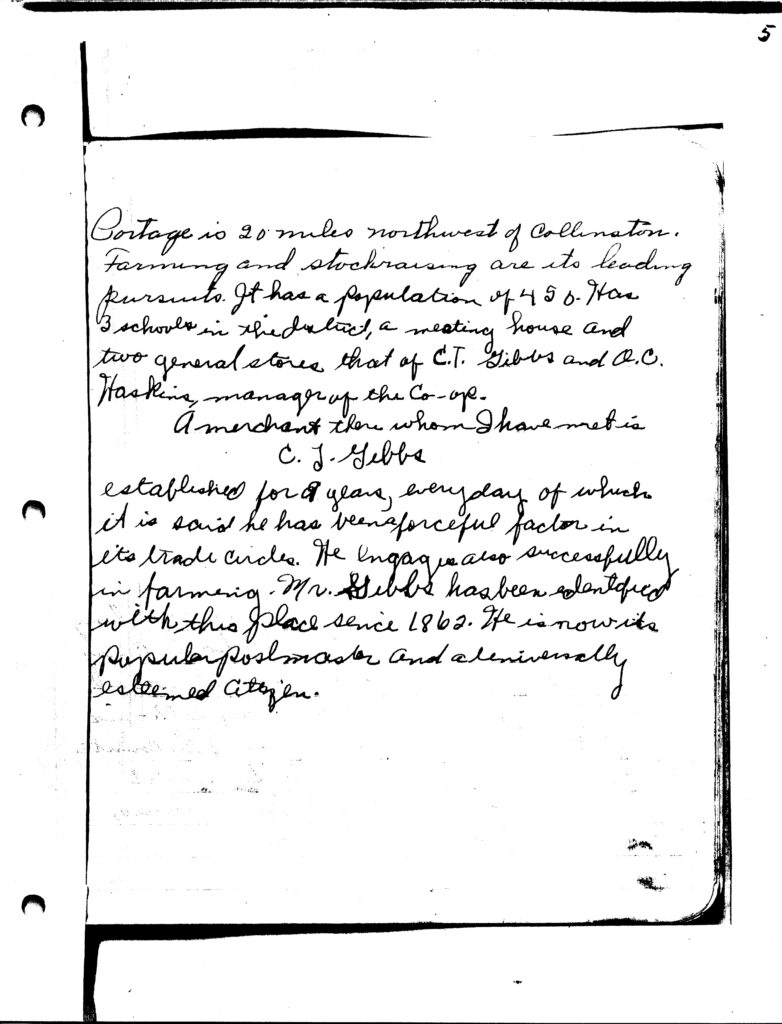 5
Portage is 20 miles northwest of Collinston.
Farming and stockraising are its leading
pursuits. It has a population of 450. Has
3 schools in the district, a meeting house and
two general stores, that of C.T. Gibbs and O.C.
Haskins, manager of the Co-op.
A merchant there whom I have met is
C. J. Gibbs
established for 9 years, everyday of which
it is said he has been a forceful factor in
its trade circles. He Engages also successfully
in farming. Mr. Gibbs has been identified
with this place since 1862. He is now its
popular postmaster and a universally
esteemed citizen.